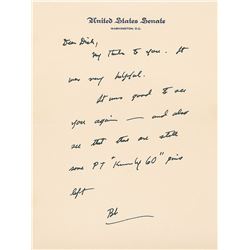 United States Senate
WASHINGTON, D.C.
Dear Dick,
My thanks to you. It
was very helpful.
It was good to see
you again — and also
see that there are still
some PT "Kennedy 60" pins
left
Bob